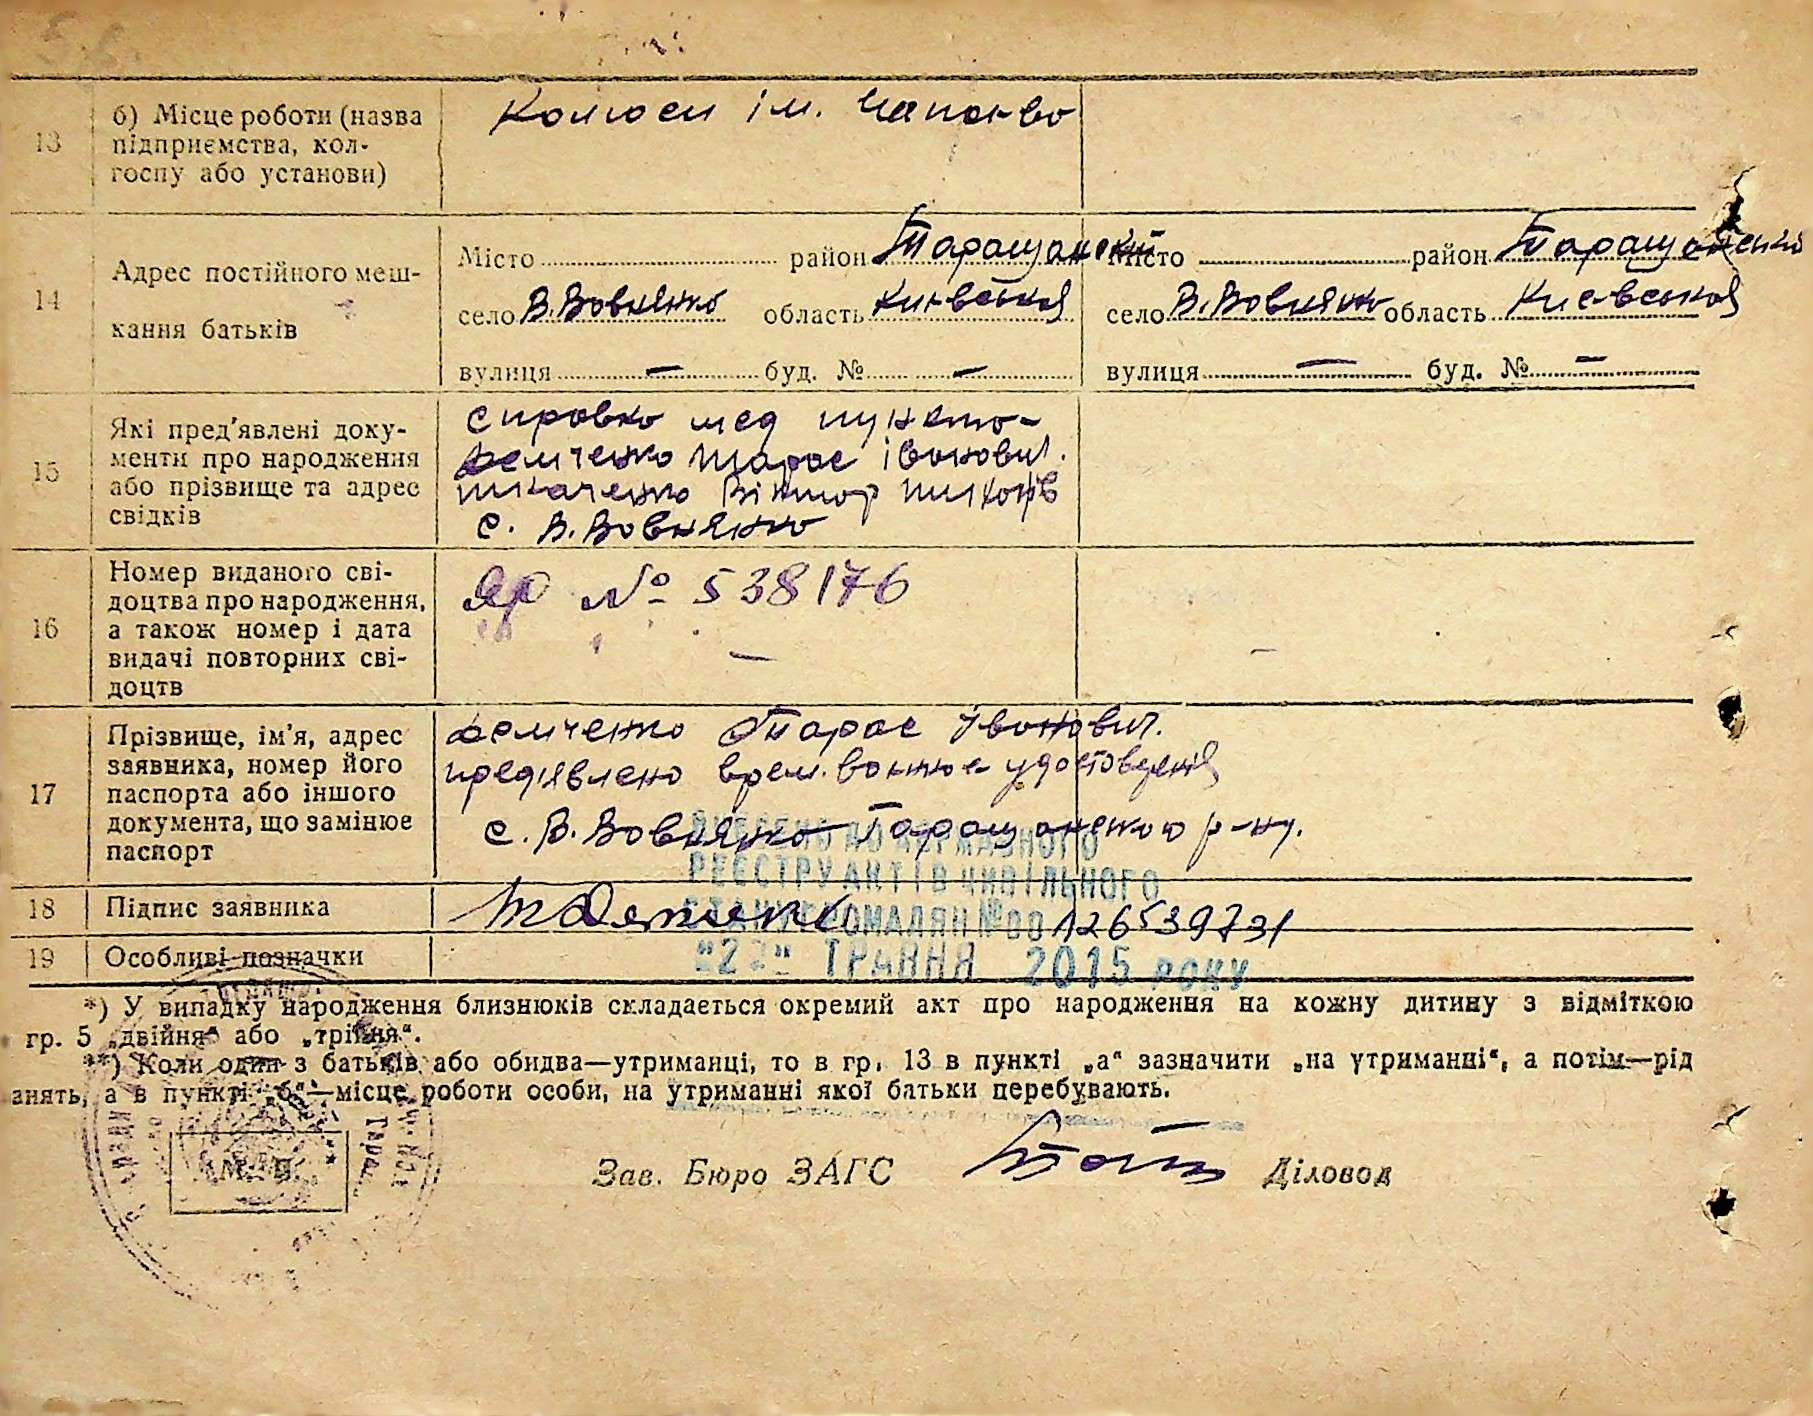 13 б) Місце роботи (назва підприємства, кол-
госпу або установи)
Колгосп ім. Чапаєва
14 Адрес постійного меш-
кання батьків
Місто район Таращанський Місто район Таращанський
село В.Вовнянко область Київська село В.Вовнянко область Киевська
вулиця — буд. № — вулиця — буд. № —
15 Які пред'явлені доку-
менти про народження
або прізвище та адрес
свідків
справка мед пункта-
Демченко Тарас Іванович.
Ткаченко Віктор
с. В. Вовнянко
16 Номер виданого сві-
доцтва про народження,
а також номер і дата
видачі повторних сві-
доцтв
ЯР № 538176
—
17 Прізвище, ім'я, адрес
заявника, номер його
паспорта або іншого
документа, що замінює
паспорт
Демченко Тарас Іванович.
предявлено врем. удостоверенія
с. В. Вовнянко Таращанского р-ну.
ВНЕСЕНО ДО ДЕРЖАВНОГО
РЕЄСТРУ АКТІВ ЦИВІЛЬНОГО
18 Підпис заявника
СТАНУ ГРОМАДЯН № 00126539731
19 Особливі позначки
"22" ТРАВНЯ 2015 РОКУ
*) У випадку народження близнюків складається окремий акт про народження на кожну дитину з відміткою
гр. 5 „двійня" або „трійня".
**) Коли один з батьків або обидва—утриманці, то в гр. 13 в пункті „а" зазначити „на утриманні", а потім—рід
анять, а в пункті „б"—місце роботи особи, на утриманні якої батьки перебувають.
М. П.
Зав. Бюро ЗАГС Діловод